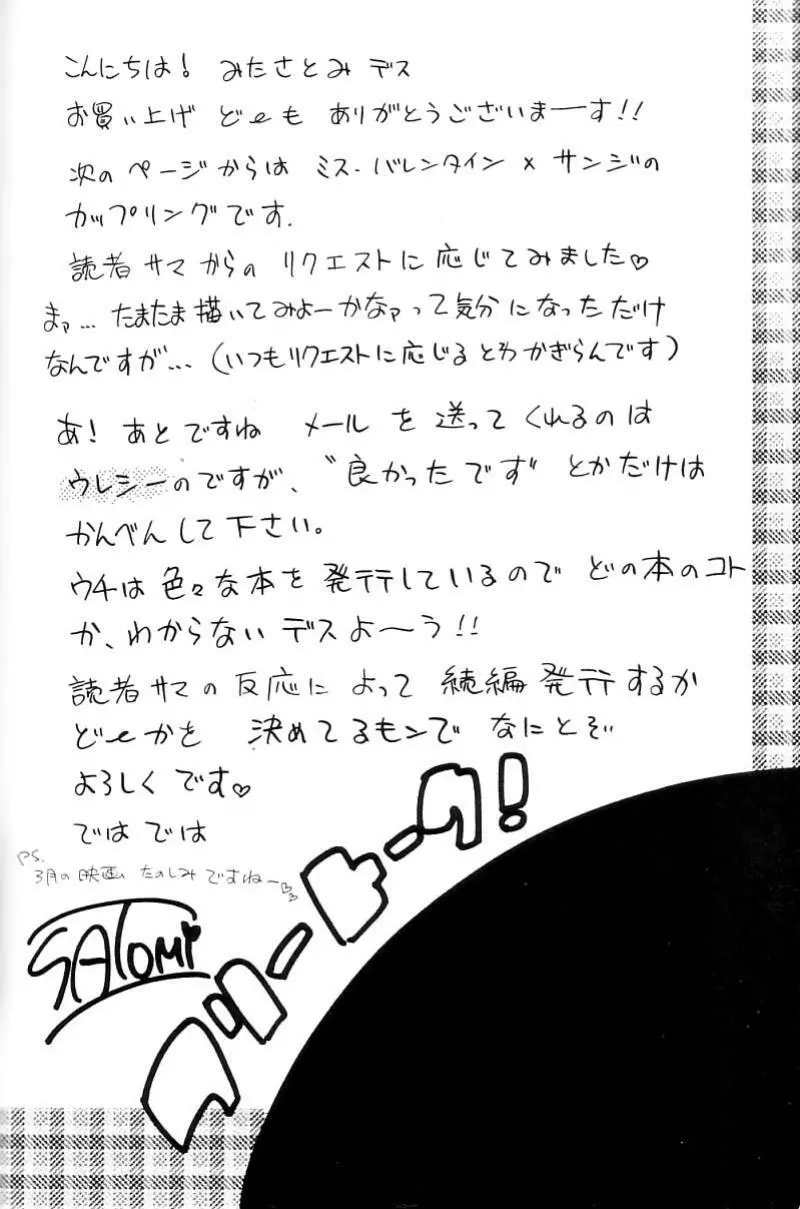 こんにちは! みたさとみ デス
お買い上げ ど〜も ありがとうございまーす!!
次の ページからは ミス・バレンタイン × サンジの
カップリングです.
読者サマからの リクエストに 応じてみました♡
まァ… たまたま描いてみよーかなァって気分になっただけ
なんですが… (いつもリクエストに応じるとわかぎらんです)
あ! あとですね メールを送ってくれるのは
ウレシーのですが、〝良かったです〟とかだけは
かんべんして下さい。
ウチは色々な本を発行しているので どの本のコト
か、わからないデスよ〜う!!
読者サマの反応によって 続編発行するか
ど〜かを 決めてるモンで なにとぞ
よろしくです♡
ではでは
PS.
3月の映画 たのしみですねー♡♡
SATOMi
フリートーク!